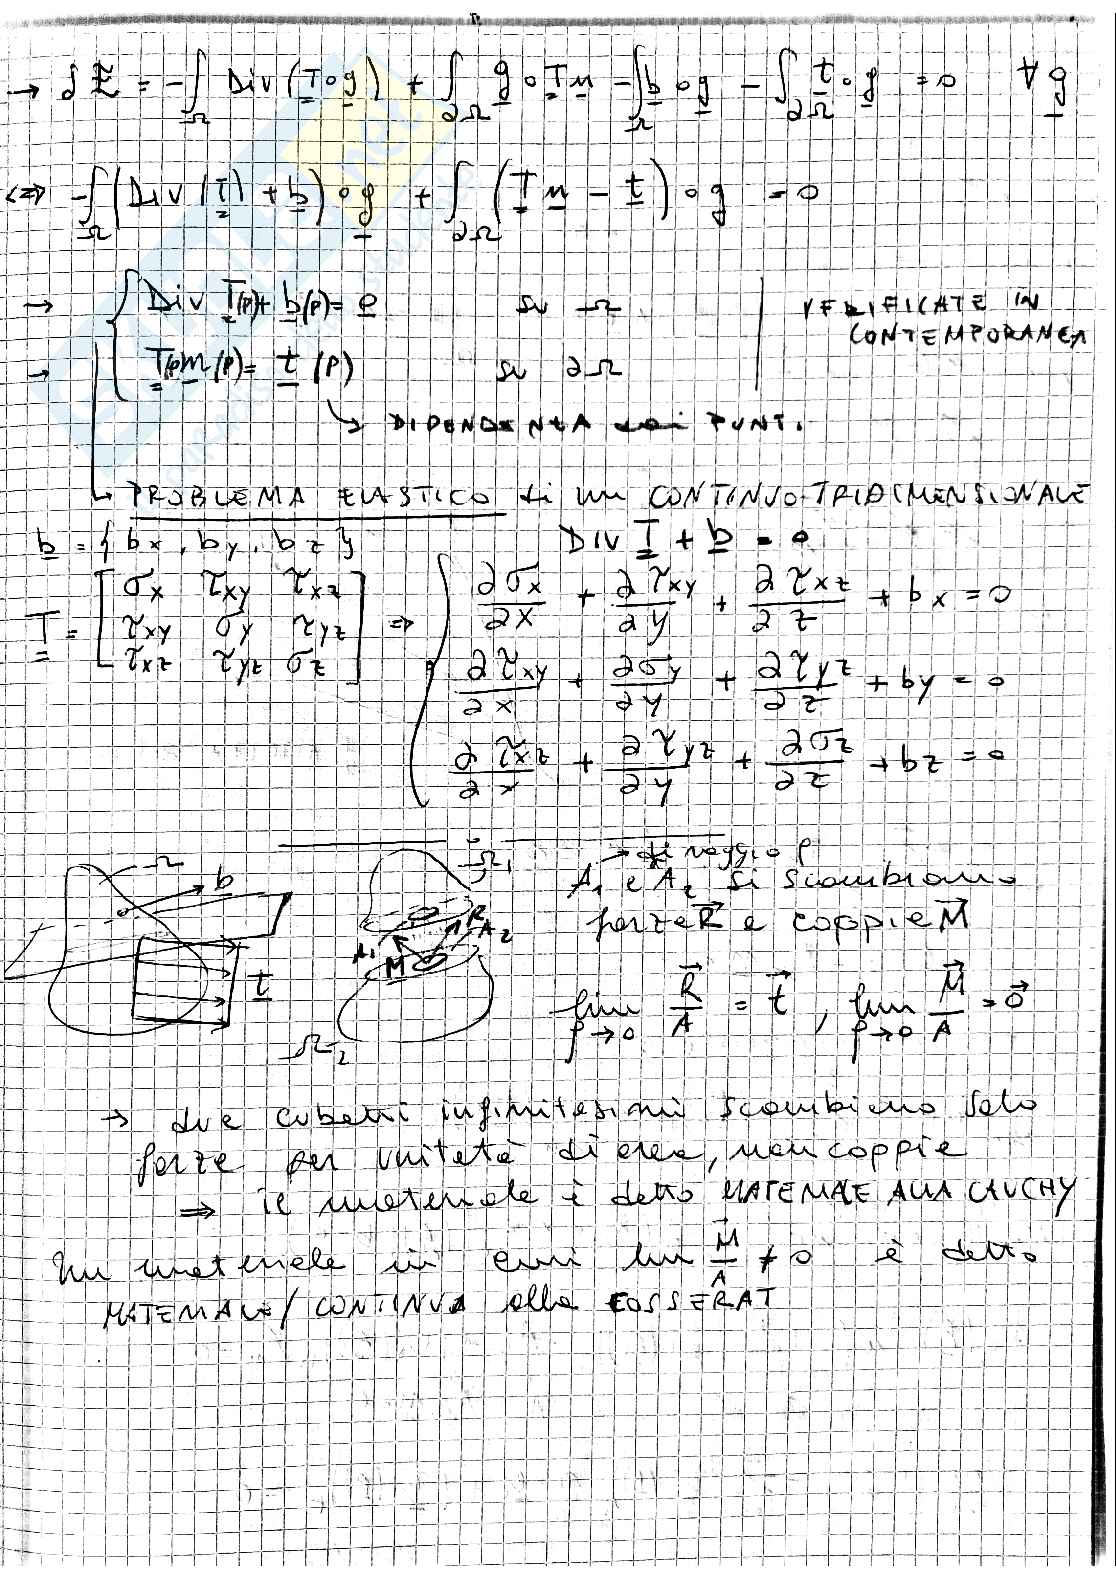 → δE = -∫_Ω Div (T∘g) + ∫_∂Ω g∘Tn - ∫_Ω b∘g - ∫_∂Ω t∘g = 0 ∀ g
<=> -∫_Ω (Div (T) + b)∘g + ∫_∂Ω (Tn - t)∘g = 0
→ { Div T(p) + b(p) = o su Ω | VERIFICATE IN
CONTEMPORANEA
→ T(p)n(p) = t(p) su ∂Ω
↳ DIPENDENZA dai PUNTI
↳ PROBLEMA ELASTICO di un CONTINUO TRIDIMENSIONALE
b = {bx, by, bz} DIV T + b = 0
T = [σx τxy τxz
τxy σy τyz
τxz τyz σz] ⇒
∂σx/∂x + ∂τxy/∂y + ∂τxz/∂z + bx = 0
∂τxy/∂x + ∂σy/∂y + ∂τyz/∂z + by = 0
∂τxz/∂x + ∂τyz/∂y + ∂σz/∂z + bz = 0
Ω b t
Ω1 A1 M R A2 Ω2
→ di raggio ρ
A1 e A2 si scambiano
forze R e coppie M
lim ρ→0 R/A = t, lim ρ→0 M/A = 0
→ due cubetti infinitesimi scambiano solo
forze per unità di area, non coppie
⇒ il materiale è detto MATERIALE ALLA CAUCHY
Un materiale in cui lim M/A ≠ 0 è detto
MATERIALE/CONTINUO alla COSSERAT